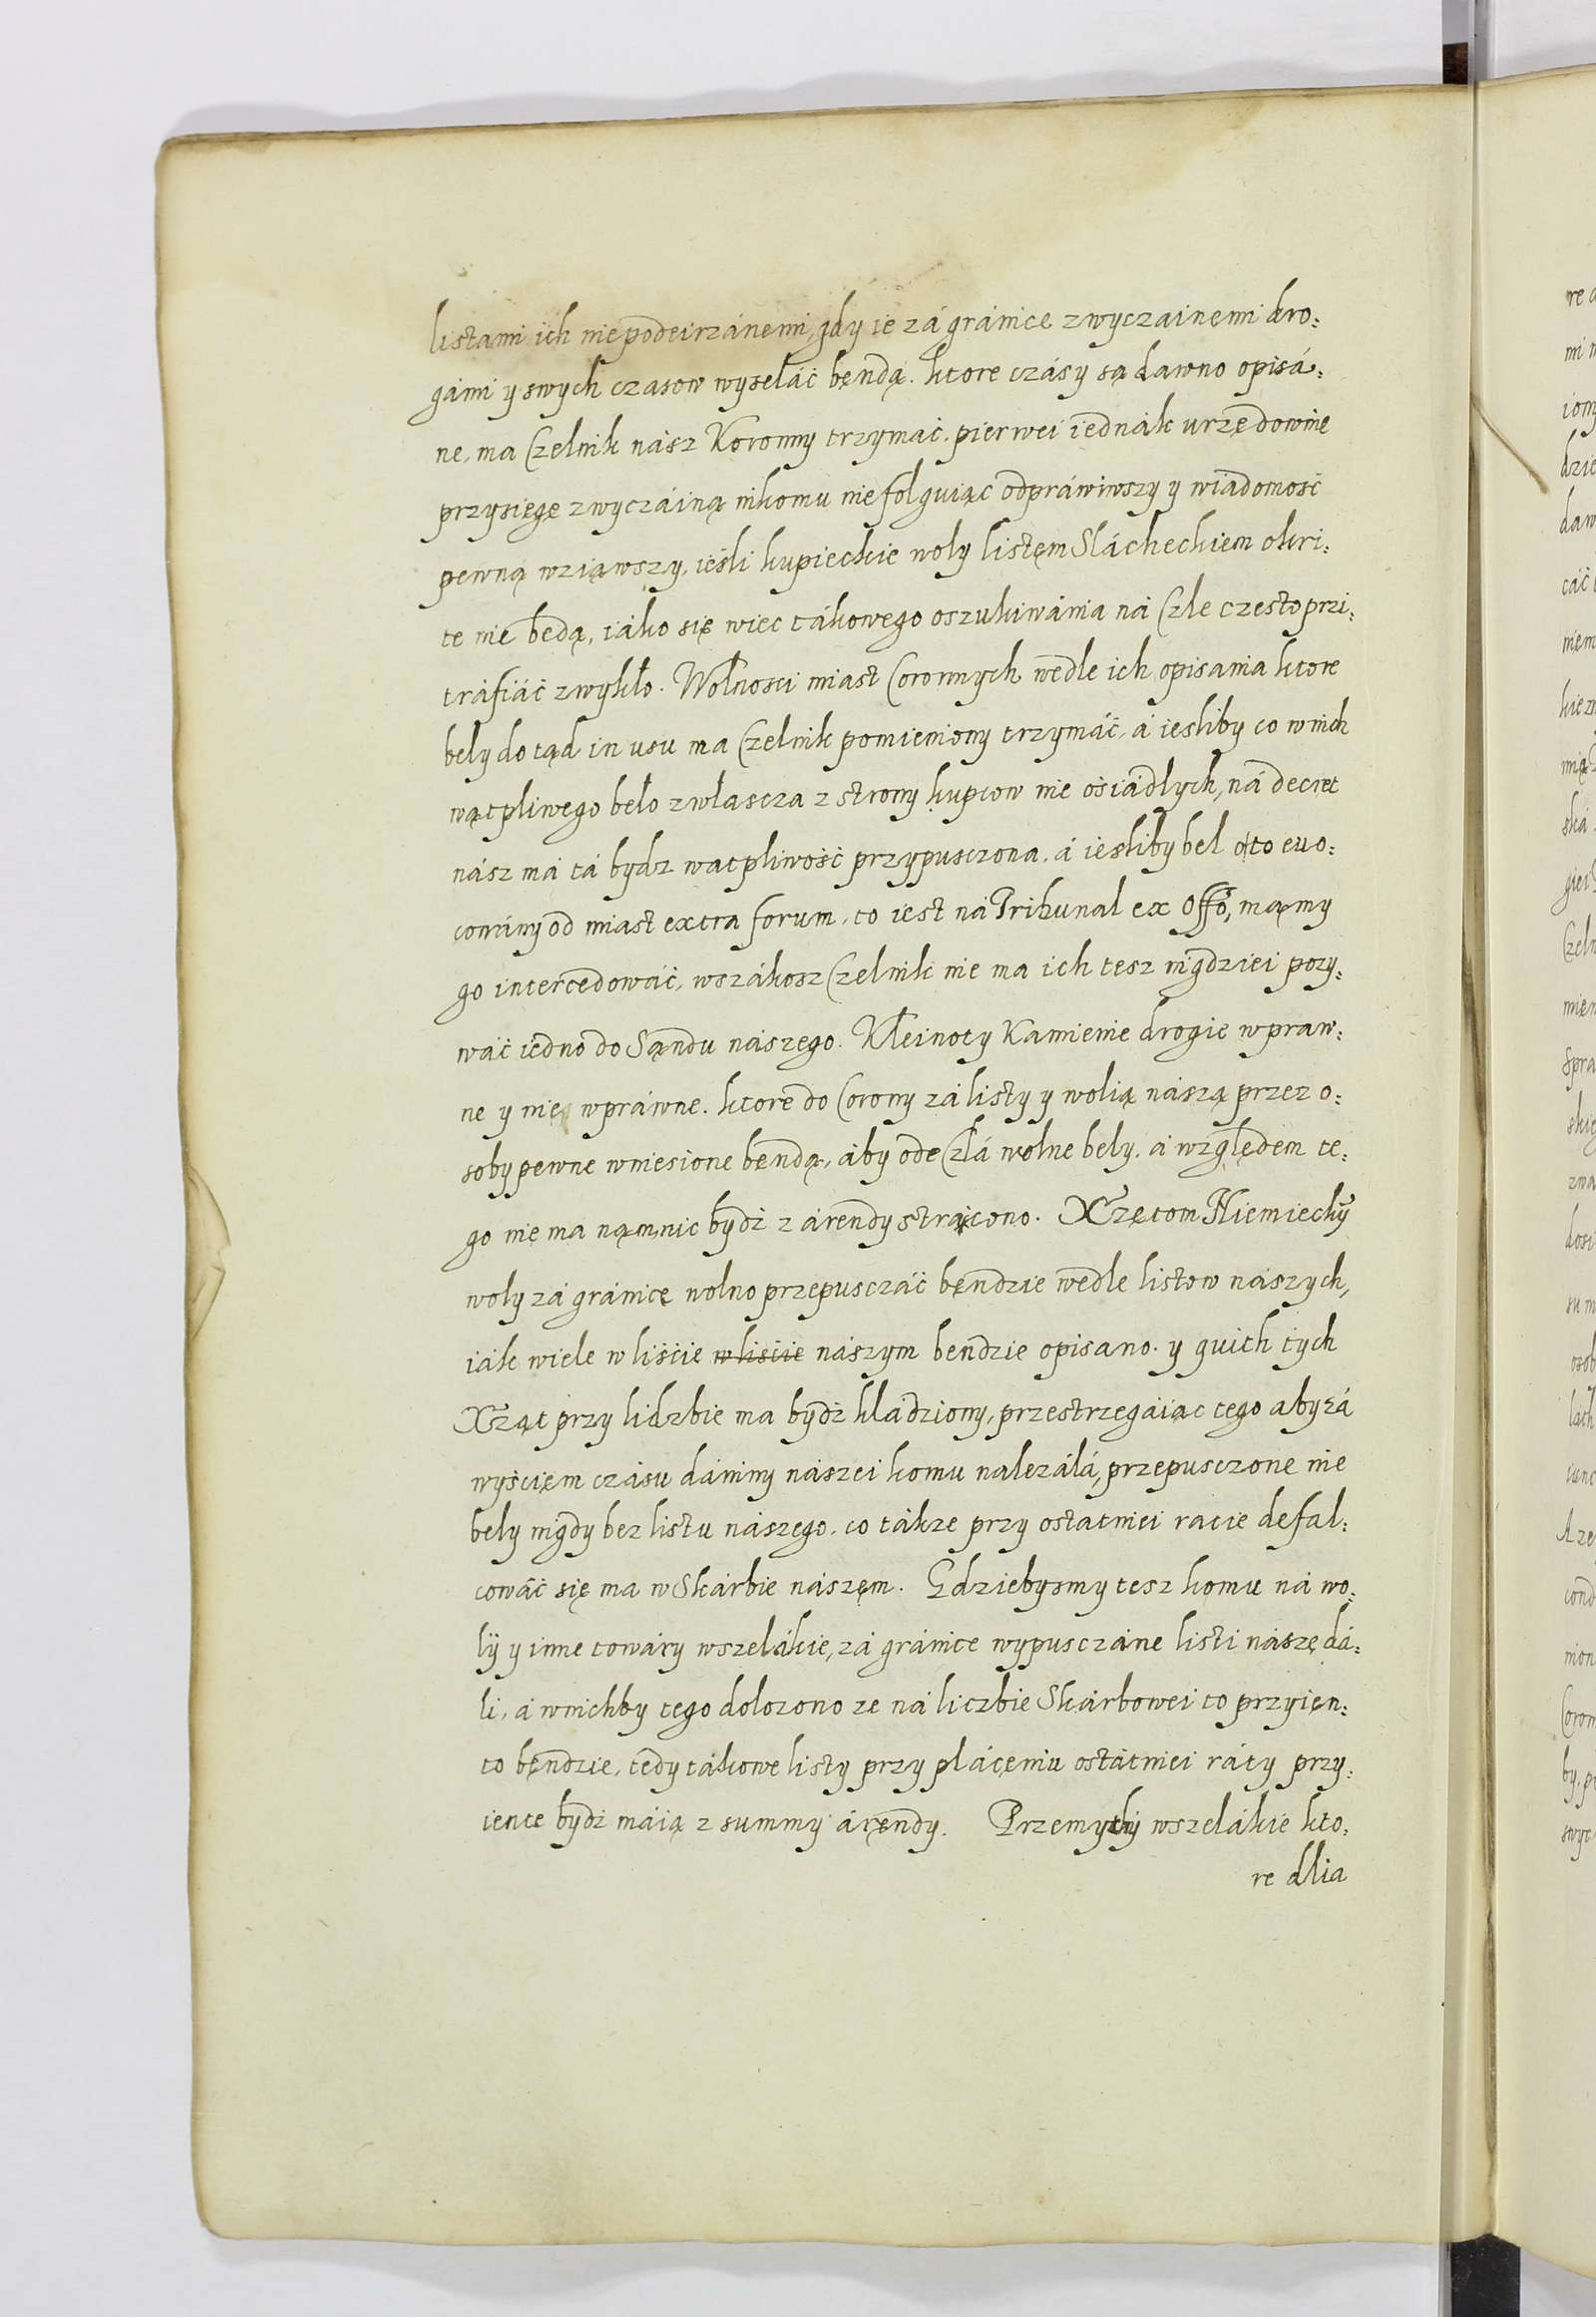 listami ich niepodeirzánemi, gdy ie zá gránice zwyczainemi dro:
gámi y swych czasow wyseláć bęndą. ktore czásy są dawno opisá:
ne, ma Czelnik nász Koronny trzymać. pierwei iednák urzędownie
przysięgę zwyczáiną nikomu nie folguiąc odpráwiwszy y wiádomość
pewną wziąwszy, ieśli kupieckie woly listęm Slácheckiem okri:
te nie będą, iáko się wiec tákowego oszukiwánia ná Czle często przi:
tráfiáć zwykło. Wolności miast Coronnych wedle ich opisania ktore
bely do tąd in usu ma Czelnik pomieniony trzymáć, á iesliby co w nich
wątpliwego beło zwłascza z strony kupcow nie ośiádłych, ná decret
nász má tá bydz wątpliwość przypusczona. á iesliby bel o to euo:
cowány od miast extra forum, to iest ná Tribunal ex Offo, mąmy
go intercedowáć, wszákosz Czelnik nie ma ich tesz nigdziei pozy:
wáć iedno do Sąndu nászego. Kleinoty Kamienie drogie wpraw:
ne y nie wpráwne. ktore do Corony zá listy y wolią nászą przez o:
soby pewne wniesione bęndą, áby ode Czlá wolne bely. á względem te:
go nie ma nąm nic bydź z árendy strącono. Xrzętom Niemieckỹ
woly zá gránicę wolno przepusczáć bęndzie wedle listow nászych,
iák wiele w liście w liście nászym bendzie opisano. y quith tych
Xrząt przy lidzbie ma bydź kládziony, przestrzegáiąc tego aby zá
wyściem czásu dániny nászei komu nalezálá, przepusczone nie
bely nigdy bez listu nászego. co tákze przy ostatniei racie defal:
cowáć się ma w Skárbie nászęm. Gdziebysmy tesz komu ná wo:
lÿ y inne towáry wszelákie, zá gránice wypusczáne listi nászę dá:
li, á w nichby tego dolozono ze ná liczbie Skárbowei to przyięn:
to bęndzie, tedy tákowe listy przy plácęniu ostátniei ráty przy:
ięnte bydź máią z summy áręndy. Przemythy wszelákie kto:
re dlia